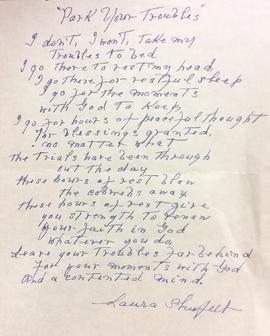 "Park Your Troubles"
I don't, I won't, take my
troubles to bed
I go there to rest my head,
I go there for restful sleep
I go for the moments
with God to keep,
I go for hours of peaceful thought
for blessings granted,
no matter what
the trials have been through
out the day
these hours of rest blew
the cobwebs away
these hours of rest give
you strength to renew
your faith in God
whatever you do,
Leave your troubles far behind
for your moments with God
and a contented mind.
Laura